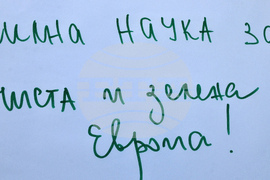 УМНА НАУКА ЗА
ЧИСТА и зелена
Европа!